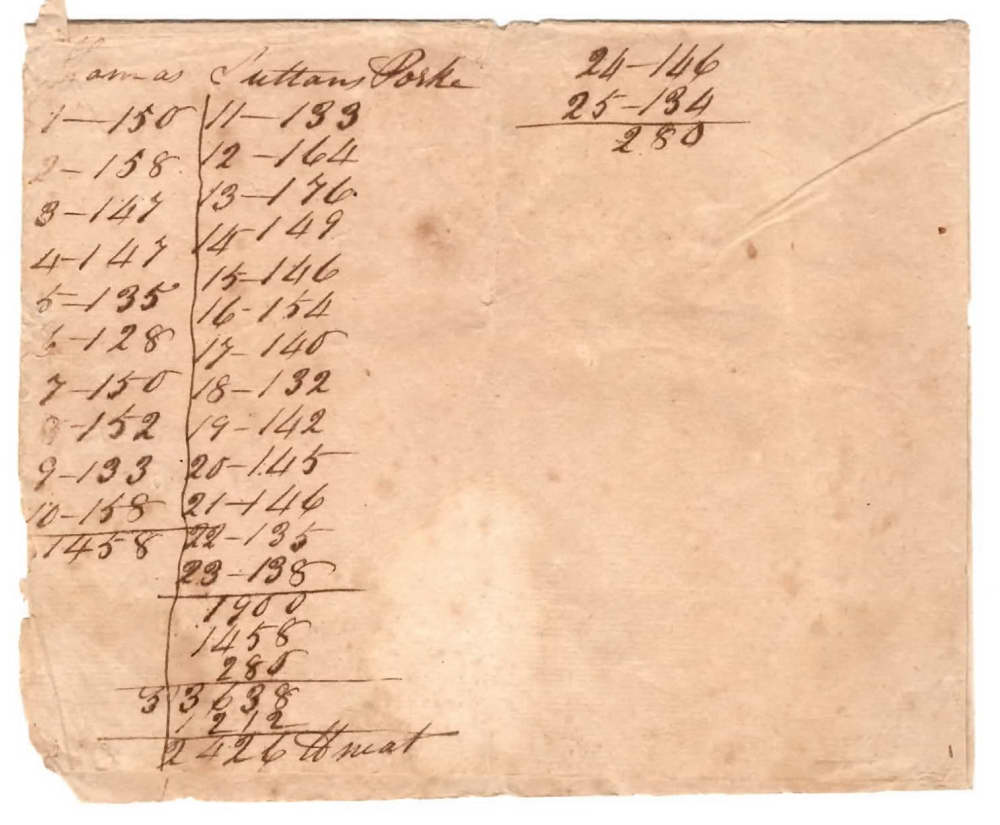 Thomas Suttans Porke
1-150
2-158
3-147
4-147
5-135
6-128
7-150
8-152
9-133
10-158
1458
11-133
12-164
13-176
14-149
15-146
16-154
17-140
18-132
19-142
20-145
21-146
22-135
23-138
1900
1458
280
3 3638
1212
2426 ℔ neat
24-146
25-134
280